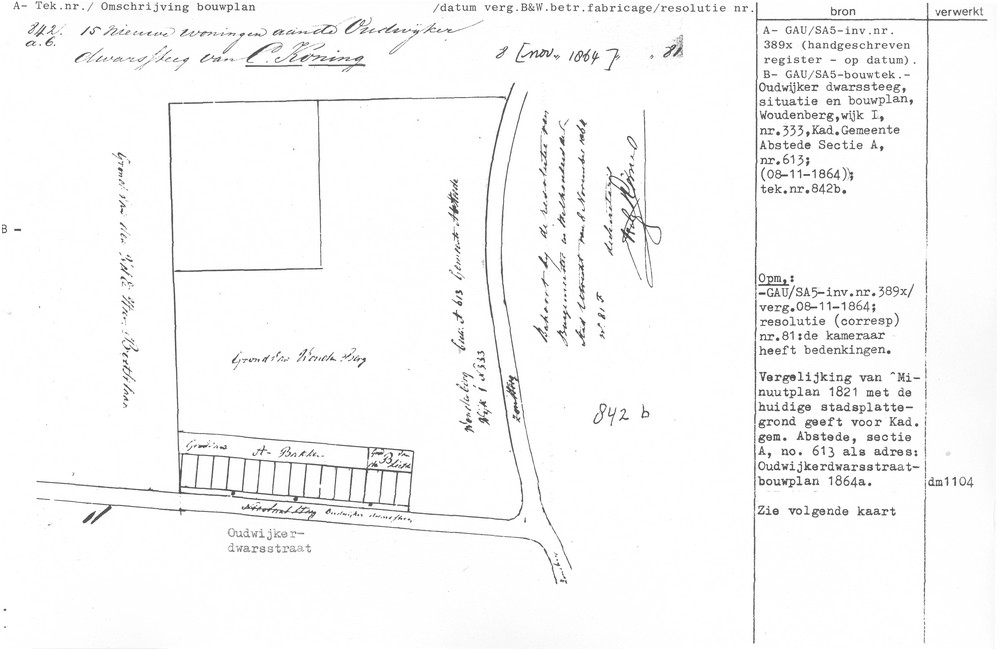 A- Tek.nr./ Omschrijving bouwplan /datum verg.B&W.betr.fabricage/resolutie nr.
bron
verwerkt
842. 15 nieuwe woningen aan de Oudwijker
a.b.
dwarssteeg van C. Koning 8 [nov. 1864] " 81
B -
Grond van
Grond van Woudenberg
Woudenberg Sectie A 613 Gemeente Abstede
Wijk I No 333
Behoort bij de resolutie van
Burgemeester en Wethouders der
Stad Utrecht van 8 November 1864
nr. 81 F
de Secretaris
842 b
Grond van A- Bakker
Grond van de B
Oudwijker dwarssteeg
Oudwijker-
dwarsstraat
A- GAU/SA5-inv.nr.
389x (handgeschreven
register - op datum).
B- GAU/SA5-bouwtek.-
Oudwijker dwarssteeg,
situatie en bouwplan,
Woudenberg,wijk I,
nr.333,Kad.Gemeente
Abstede Sectie A,
nr.613;
(08-11-1864);
tek.nr.842b.
Opm.:
-GAU/SA5-inv.nr.389x/
verg.08-11-1864;
resolutie (corresp)
nr.81:de kameraar
heeft bedenkingen.
Vergelijking van Mi-
nuutplan 1821 met de
huidige stadsplatte-
grond geeft voor Kad.
gem. Abstede, sectie
A, no. 613 als adres:
Oudwijkerdwarsstraat-
bouwplan 1864a.
dm1104
Zie volgende kaart